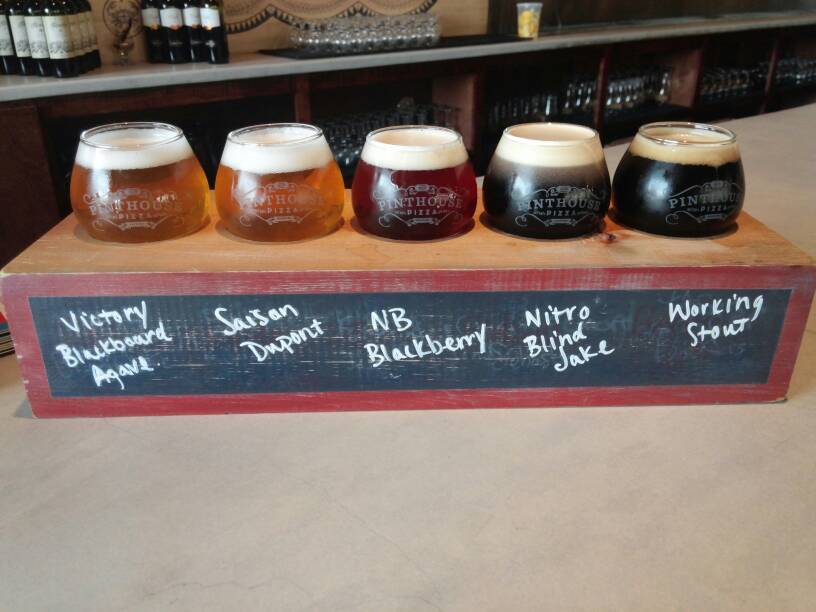 PINTHOUSE
PIZZA
PINTHOUSE
PIZZA
PINTHOUSE
PIZZA
PINTHOUSE
PIZZA
PINTHOUSE
PIZZA
Victory
Blackboard
Agave.
Saison
Dupont
NB
Blackberry
Nitro
Blind
Jake
Working
Stout